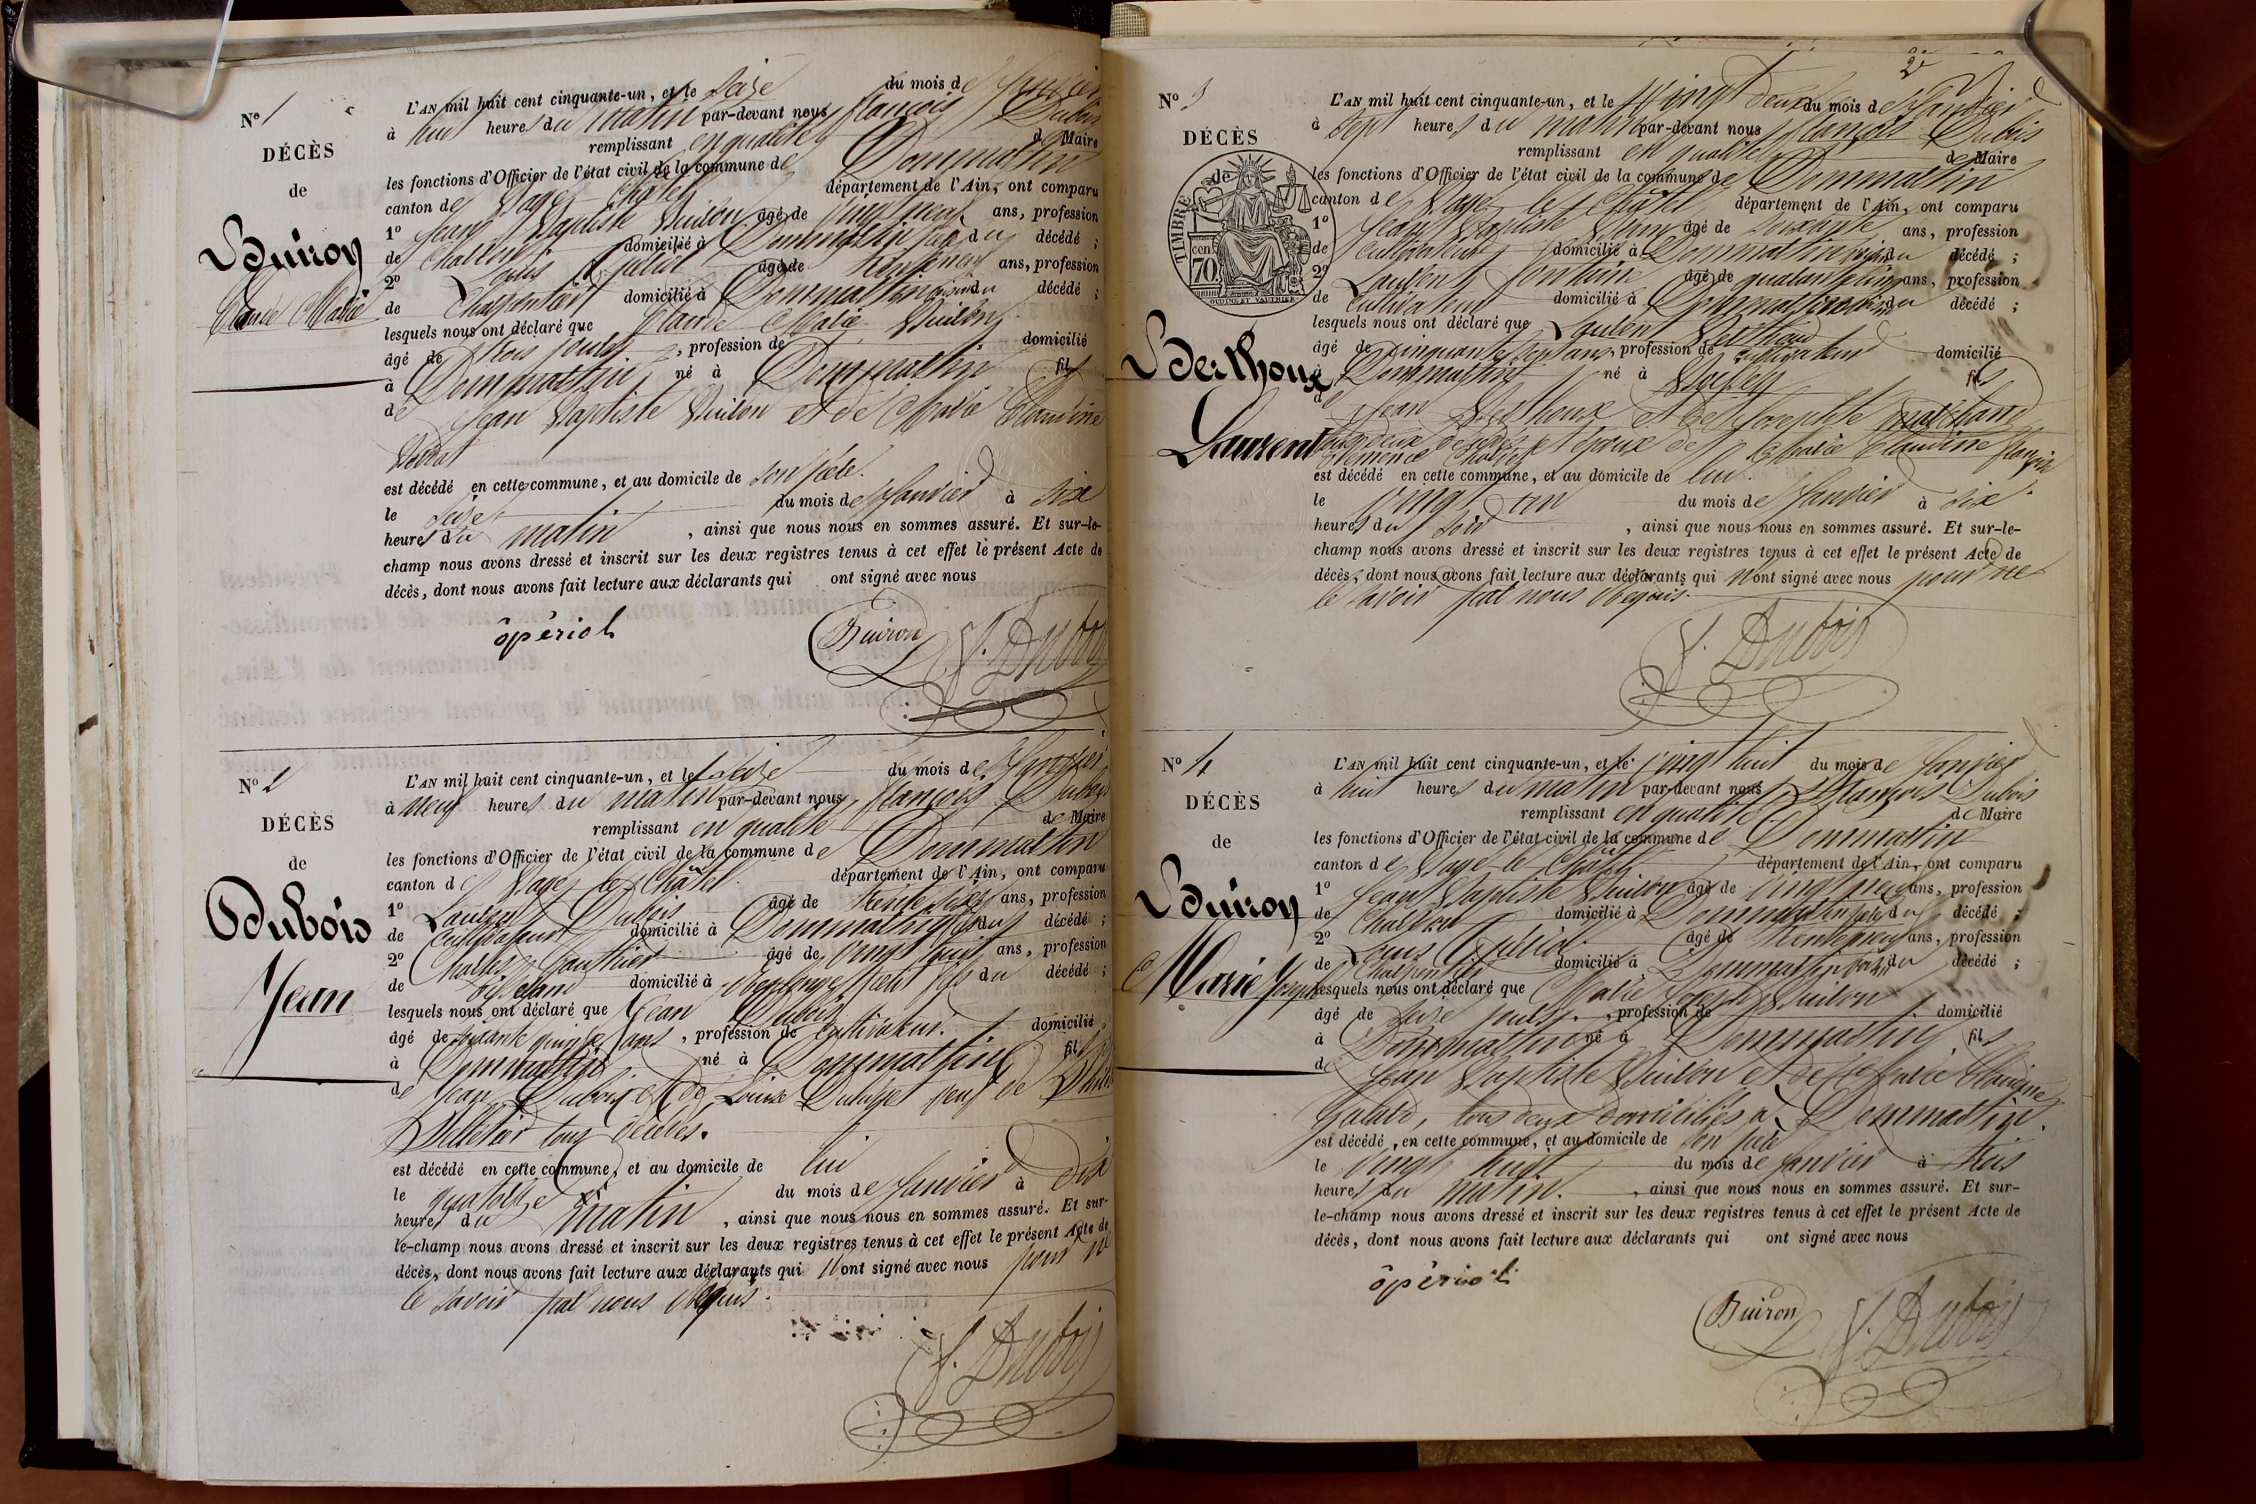 N° 1
DÉCÈS
de
Buiron
Claude Marie
L'AN mil huit cent cinquante-un, et le seize du mois de Janvier
à huit heures du matin par-devant nous François Dubois
remplissant en qualité de Maire
les fonctions d'Officier de l'état civil de la commune de Dommartin
canton de Bagé le Châtel département de l'Ain, ont comparu
1° Jean Baptiste Buiron âgé de vingt neuf ans, profession
de domicilié à Dommartin père du décédé ;
2° Louis Opériol âgé de trente neuf ans, profession
de Charpentier domicilié à Dommartin voisin du décédé ;
lesquels nous ont déclaré que Claude Marie Buiron
âgé de trois jours, profession de domicilié
à Dommartin né à Dommartin fils
de Jean Baptiste Buiron et de Marie Claudine
est décédé en cette commune, et au domicile de son père.
le seize du mois de Janvier à six
heures du matin, ainsi que nous nous en sommes assuré. Et sur-le-
champ nous avons dressé et inscrit sur les deux registres tenus à cet effet le présent Acte de
décès, dont nous avons fait lecture aux déclarants qui ont signé avec nous
ôpériol Buiron f. Dubois
N° 2
DÉCÈS
de
Dubois
Jean
L'AN mil huit cent cinquante-un, et le seize du mois de Janvier
à neuf heures du matin par-devant nous françois Dubois
remplissant en qualité de Maire
les fonctions d'Officier de l'état civil de la commune de Dommartin
canton de Bagé le Châtel département de l'Ain, ont comparu
1° Laurent Dubois âgé de trente ans, profession
de cultivateur domicilié à Dommartin fils du décédé ;
2° Gauthier âgé de vingt huit ans, profession
de domicilié à petit fils du décédé ;
lesquels nous ont déclaré que Jean Dubois
âgé de soixante quinze ans, profession de cultivateur. domicilié
à Dommartin né à Dommartin fils
de Jean Dubois et de Louise veuf de
Pelletier tous décédés.
est décédé en cette commune, et au domicile de lui
le quatorze du mois de Janvier à dix
heures du matin, ainsi que nous nous en sommes assuré. Et sur-
le-champ nous avons dressé et inscrit sur les deux registres tenus à cet effet le présent Acte de
décès, dont nous avons fait lecture aux déclarants qui n'ont signé avec nous pour ne
le savoir par nous requis.
f. Dubois
2e
N° 3
DÉCÈS
de
TIMBRE
70 cen
OUDINE ET VAUTHIER
Berthoux
Laurent
L'AN mil huit cent cinquante-un, et le vingt deux du mois de Janvier
à sept heures du matin par-devant nous françois Dubois
remplissant en qualité de Maire
les fonctions d'Officier de l'état civil de la commune de Dommartin
canton de Bagé le Châtel département de l'Ain, ont comparu
1° Jean Baptiste âgé de soixante ans, profession
de cultivateur domicilié à Dommartin voisin du décédé ;
2° Laurent Fontaine âgé de quarante cinq ans, profession
de cultivateur domicilié à Dommartin voisin du décédé ;
lesquels nous ont déclaré que Laurent Berthoux
âgé de cinquante sept ans, profession de cultivateur domicilié
à Dommartin né à fils
de Jean Berthoux et de Josephte marchand
tous deux décédés et époux de Marie Claudine françoise
est décédé en cette commune, et au domicile de lui.
le vingt un du mois de Janvier à six
heures du soir, ainsi que nous nous en sommes assuré. Et sur-le-
champ nous avons dressé et inscrit sur les deux registres tenus à cet effet le présent Acte de
décès, dont nous avons fait lecture aux déclarants qui n'ont signé avec nous pour ne
le savoir par nous requis.
f. Dubois
N° 4
DÉCÈS
de
Buiron
Marie Joseph
L'AN mil huit cent cinquante-un, et le vingt huit du mois de Janvier
à huit heures du matin par-devant nous françois Dubois
remplissant en qualité de Maire
les fonctions d'Officier de l'état civil de la commune de Dommartin
canton de Bagé le Châtel département de l'Ain, ont comparu
1° Jean Baptiste Buiron âgé de vingt neuf ans, profession
de domicilié à Dommartin père du décédé ;
2° Louis Opériol âgé de trente neuf ans, profession
de Charpentier domicilié à Dommartin voisin du décédé ;
lesquels nous ont déclaré que Marie Joseph Buiron
âgé de seize jours, profession de domicilié
à Dommartin né à Dommartin fils
de Jean Baptiste Buiron et de Marie Claudine
tous deux domiciliés à Dommartin.
est décédé, en cette commune, et au domicile de son père
le vingt huit du mois de Janvier à trois
heures du matin., ainsi que nous nous en sommes assuré. Et sur-
le-champ nous avons dressé et inscrit sur les deux registres tenus à cet effet le présent Acte de
décès, dont nous avons fait lecture aux déclarants qui ont signé avec nous
ôpériol Buiron f. Dubois